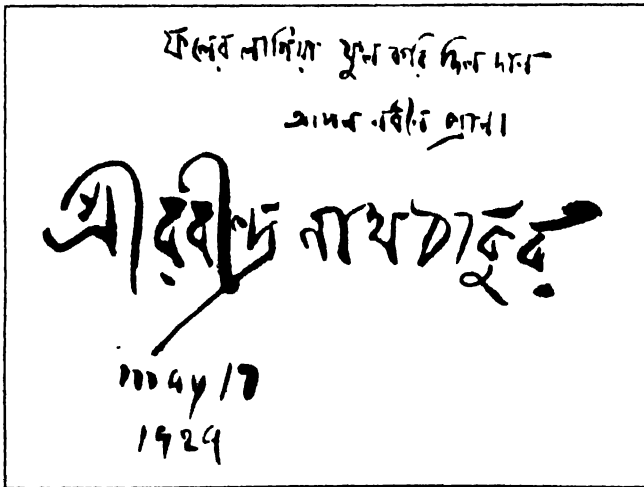 ফলের লাগিয়া ফুল করি দিল দান
আপন প্রাণ।
শ্রীরবীন্দ্রনাথ ঠাকুর
May
1929